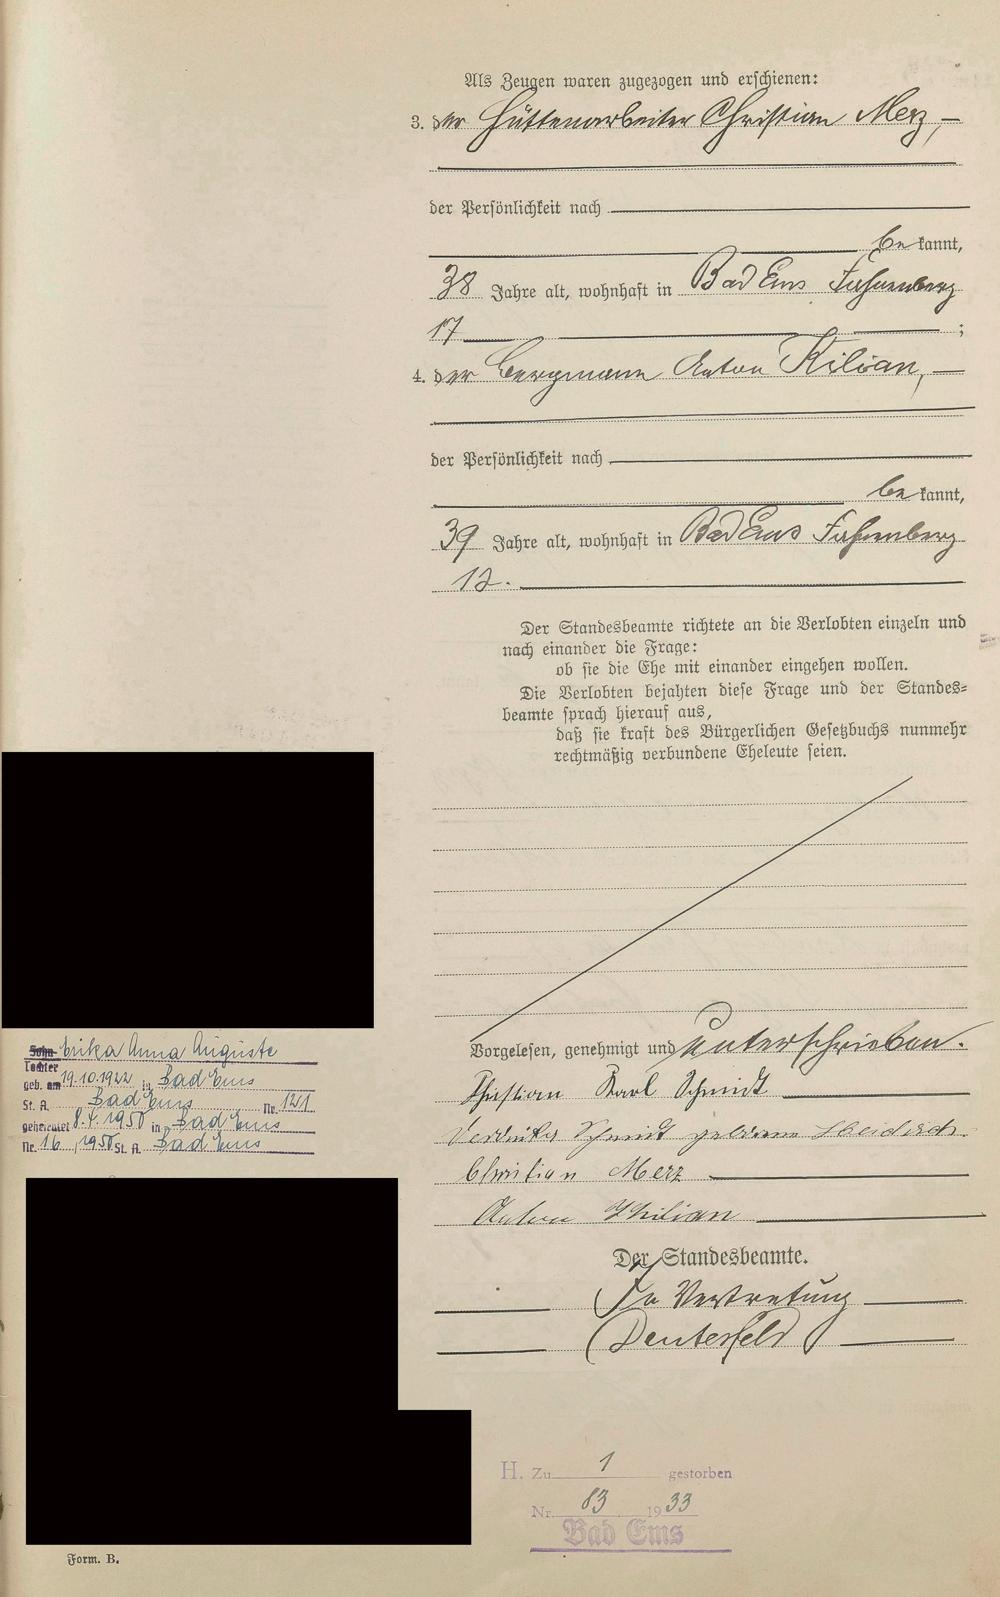 Als Zeugen waren zugezogen und erschienen:
3. der Hüttenarbeiter Christian Merz,
der Persönlichkeit nach
be kannt,
38 Jahre alt, wohnhaft in Bad Ems Fahnenberg
17 ;
4. der Bergmann Anton Kilian,
der Persönlichkeit nach
be kannt,
39 Jahre alt, wohnhaft in Bad Ems Fahnenberg
12.
Der Standesbeamte richtete an die Verlobten einzeln und
nach einander die Frage:
ob sie die Ehe mit einander eingehen wollen.
Die Verlobten bejahten diese Frage und der Standes=
beamte sprach hierauf aus,
daß sie kraft des Bürgerlichen Gesetzbuchs nunmehr
rechtmäßig verbundene Eheleute seien.
Vorgelesen, genehmigt und unterschrieben.
Christian Karl Schmidt
Schmidt geborene
Christian Merz
Anton Kilian
Der Standesbeamte.
In Vertretung
Sohn Erika Anna Auguste
Tochter
geb. am 19.10.1922 in Bad Ems
St. A. Bad Ems Nr. 121
geheiratet 8.7.1950 in Bad Ems
Nr. 16 / 1950 St. A. Bad Ems
H. Zu 1 gestorben
Nr. 83 1933
Bad Ems
Form. B.